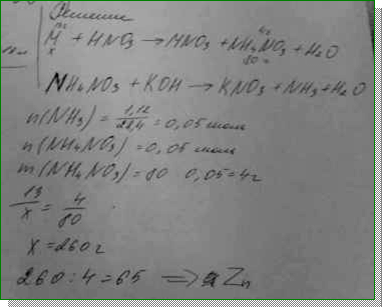 Решение
13г 4г
M + HNO3 → MNO3 + NH4NO3 + H2O
x 80г
NH4NO3 + KOH → KNO3 + NH3 + H2O
n(NH3) = 1,12/22,4 = 0,05 моль
n(NH4NO3) = 0,05 моль
m(NH4NO3) = 80 0,05 = 4г
13/x = 4/80
X = 260г
260 : 4 = 65 ⟹ Zn